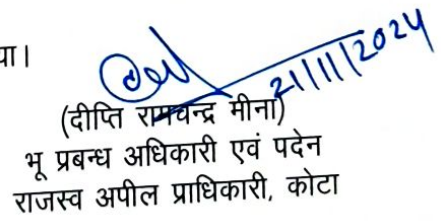 या।
21/11/2024
(दीप्ति रामचन्द्र मीना)
भू प्रबन्ध अधिकारी एवं पदेन
राजस्व अपील प्राधिकारी, कोटा